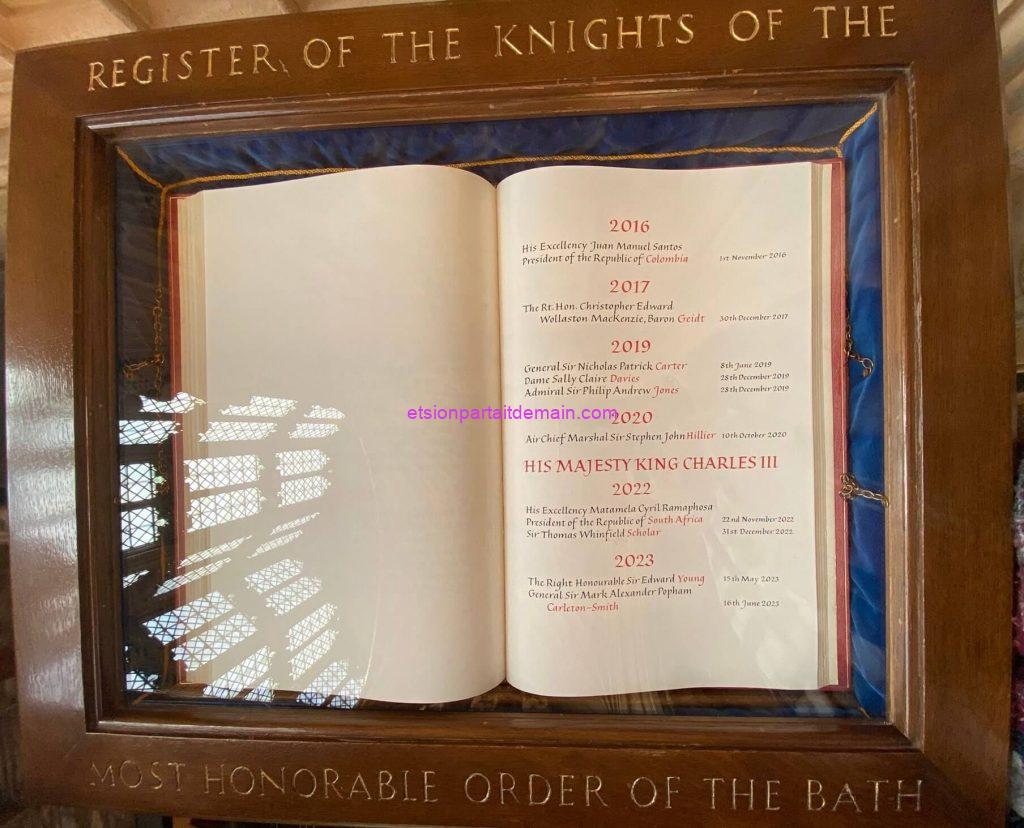 REGISTER OF THE KNIGHTS OF THE
2016
His Excellency Juan Manuel Santos
President of the Republic of Colombia 1st November 2016
2017
The Rt. Hon. Christopher Edward
Wollaston MacKenzie, Baron Geidt 30th December 2017
2019
General Sir Nicholas Patrick Carter 8th June 2019
Dame Sally Claire Davies 28th December 2019
Admiral Sir Philip Andrew Jones 28th December 2019
etsionpartaitdemain.com
2020
Air Chief Marshal Sir Stephen John Hillier 10th October 2020
HIS MAJESTY KING CHARLES III
2022
His Excellency Matamela Cyril Ramaphosa
President of the Republic of South Africa 22nd November 2022
Sir Thomas Whinfield Scholar 31st December 2022
2023
The Right Honourable Sir Edward Young 15th May 2023
General Sir Mark Alexander Popham
Carleton-Smith 16th June 2023
MOST HONORABLE ORDER OF THE BATH